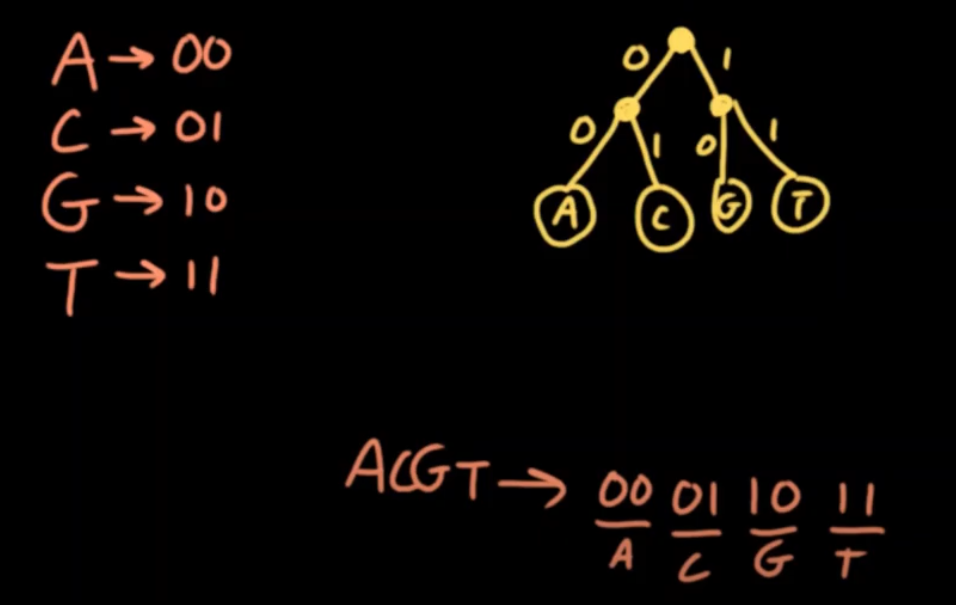 A → 00
C → 01
G → 10
T → 11
0 1
0 1 0 1
A C G T
ACGT → 00 01 10 11
A C G T